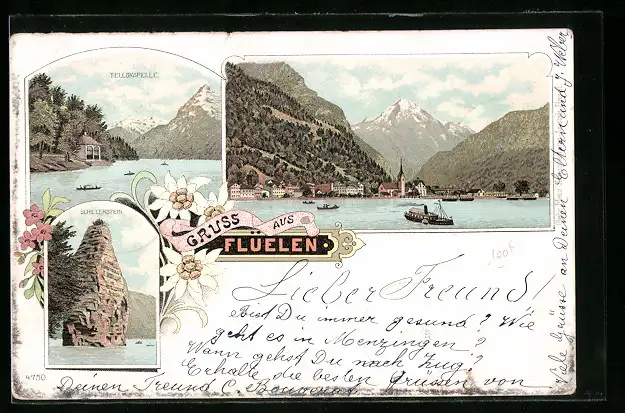 TELLSKAPELLE
SCHILLERSTEIN
GRUSS AUS
FLÜELEN.
4750.
100f
Lieber Freund!
bist Du immer gesund? Wie
geht es in Menzingen?
Wann gehst Du nach Zug?
Erhalte die besten Grüssen von
Deinen Freund C.
Viele Grüsse an Deinen Eltern und J. Weber